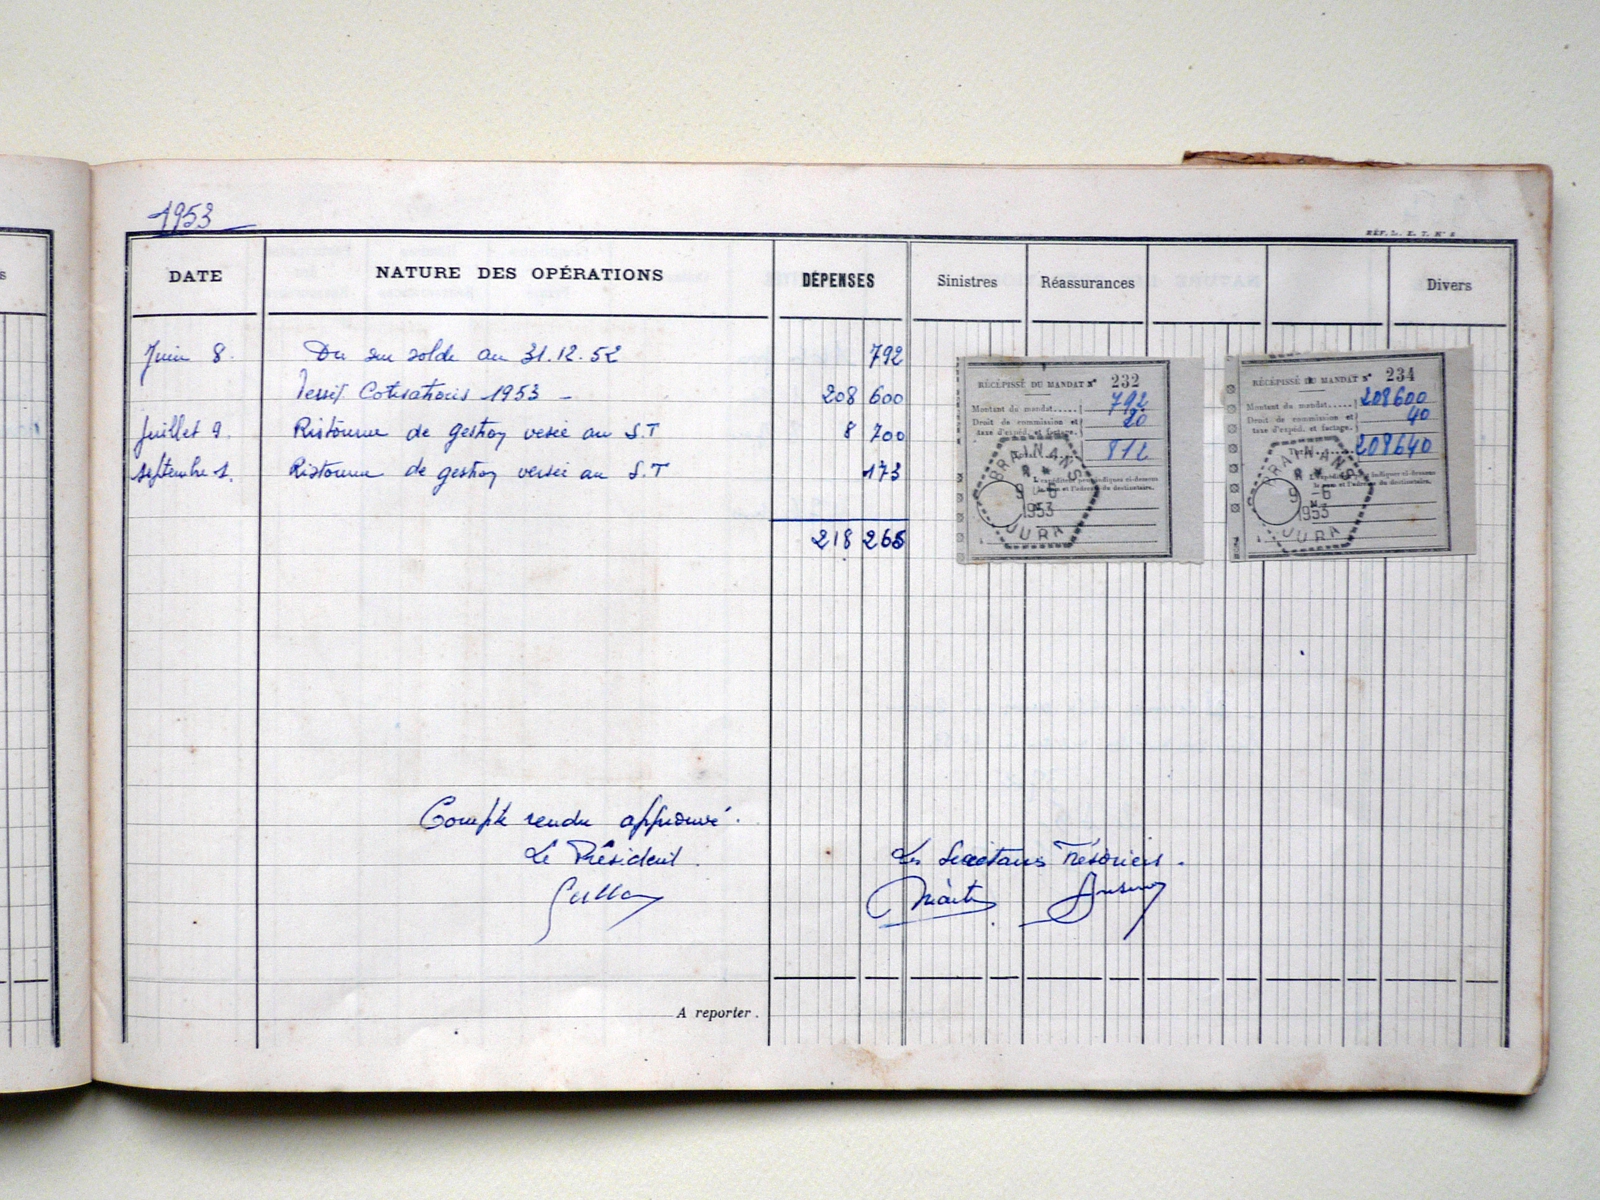 1953
RÉF. L. E. T. N° 8
DATE NATURE DES OPÉRATIONS DÉPENSES Sinistres Réassurances Divers
Juin 8. Du sur solde au 31.12.52 792
Cotisations 1953 - 208 600
Juillet 9. Ristourne de gestion versée au S.T 8 700
septembre 1. Ristourne de gestion versée au S.T 173
218 265
RÉCÉPISSÉ DU MANDAT N° 232
Montant du mandat..... 792
Droit de commission et 20
taxe d'expéd. et factage.
812
L'expéditeur peut indiquer ci-dessous
le nom et l'adresse du destinataire.
BRAINANS
9 -6
1953
JURA
RÉCÉPISSÉ DU MANDAT N° 234
Montant du mandat..... 208600
Droit de commission et 40
taxe d'expéd. et factage.
208640
indiquer ci-dessous
le nom et l'adresse du destinataire.
BRAINANS
9 -6
1953
JURA
Compte rendu approuvé.
Le Président.
Les Secrétaires Trésoriers.
A reporter.